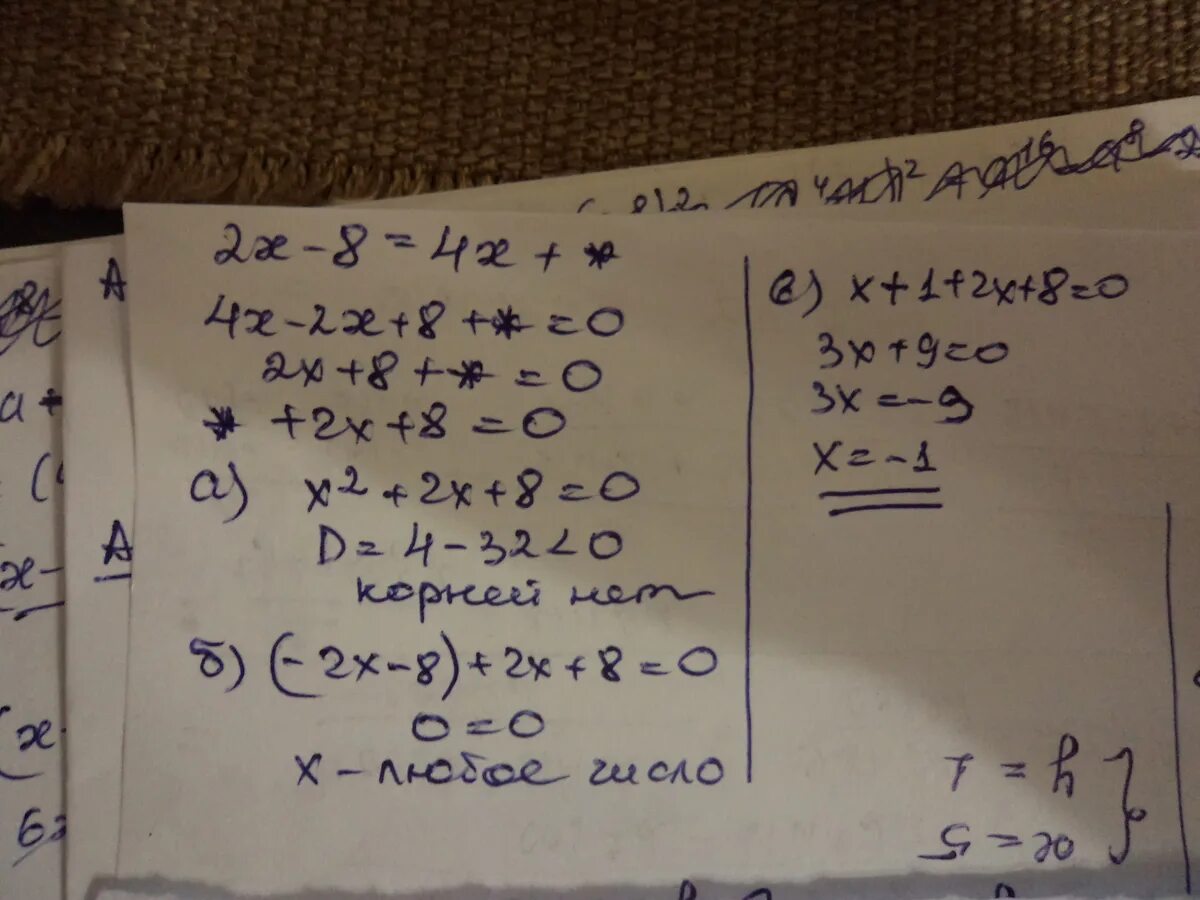 2x - 8 = 4x + *
4x - 2x + 8 + * = 0
2x + 8 + * = 0
* + 2x + 8 = 0
а) x² + 2x + 8 = 0
D = 4 - 32 < 0
корней нет
б) (-2x - 8) + 2x + 8 = 0
0 = 0
x - любое число
в) x + 1 + 2x + 8 = 0
3x + 9 = 0
3x = -9
x = -1
{ x = 5
y = 1
A
A
a +
(
x -
(x -